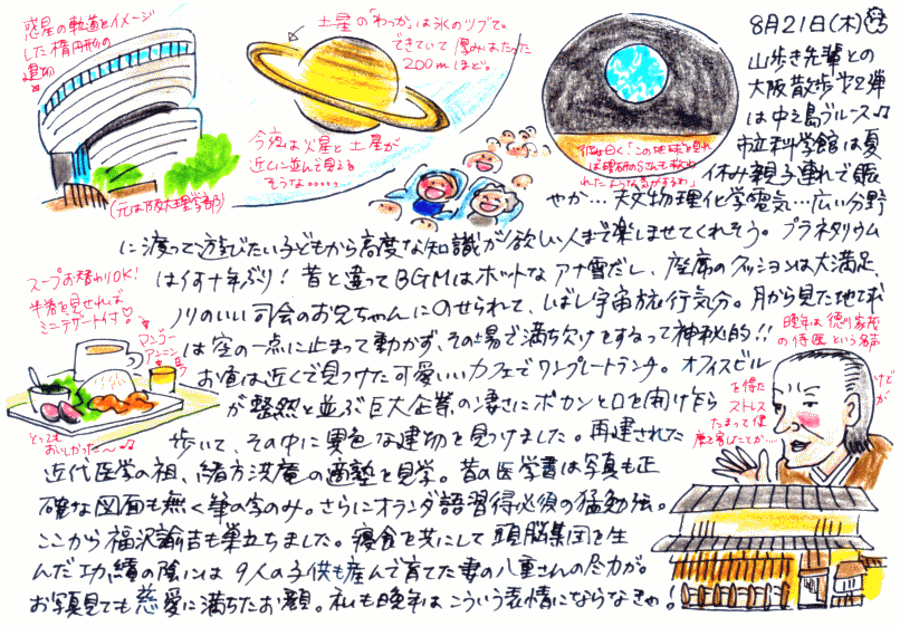 8月21日(木)
山歩き先輩との
大阪散歩第2弾
は中之島ブルース♫
市立科学館は夏
休み親子連れで賑
やか…天文物理化学電気…広い分野
に渡って遊びたい子どもから高度な知識が欲しい人まで楽しませてくれそう。プラネタリウム
は何十年ぶり！昔と違ってBGMはホットなアナ雪だし、座席のクッションは大満足、
ノリのいい司会のお兄ちゃんにのせられて、しばし宇宙旅行気分。月から見た地球
は空の一点に止まって動かず、その場で満ち欠けをするって神秘的!!
お昼は近くで見つけた可愛いいカフェでワンプレートランチ。オフィスビル
が整然と並ぶ巨大企業の凄さにポカンと口を開けながら
歩いて、その中に異色な建物を見つけました。再建された
近代医学の祖、緒方洪庵の適塾を見学。昔の医学書は写真も正
確な図面も無く筆の字のみ。さらにオランダ語習得必須の猛勉強。
ここから福沢諭吉も巣立ちました。寝食を共にして頭脳集団を生
んだ功績の陰には9人の子供も産んで育てた妻の八重さんの尽力が。
お写真見ても慈愛に満ちたお顔。私も晩年はこういう表情にならなきゃ！
惑星の軌道をイメージ
した楕円形の
建物
(元は阪大理学部)
土星の「わっか」は氷のツブで
できていて厚みはたった
200mほど。
今夜は火星と土星が
近くに並んで見える
そうな……
スープお替わりOK！
半券を見せれば
ミニデザート付♡
マンゴー
アンニン
とっても
おいしかった〜
晩年は徳川家茂
の侍医という名声
を得た
けど
ストレス
たまって健
康を害したとか…